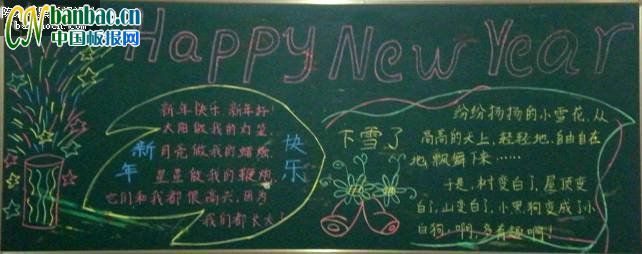 banbac.cn
中国板报网
Happy New Year
新年
快乐
新年快乐 新年好!
太阳做我的灯笼,
月亮做我的蜡烛,
星星做我的鞭炮,
它们和我都很高兴,因为
我们都长大了
下雪了
纷纷扬扬的小雪花,从
高高的天上,轻轻地,自由自在
地,飘舞下来……
于是,树变白了,屋顶变
白了,山变白了,小黑狗变成了小
白狗,啊,多有趣啊!